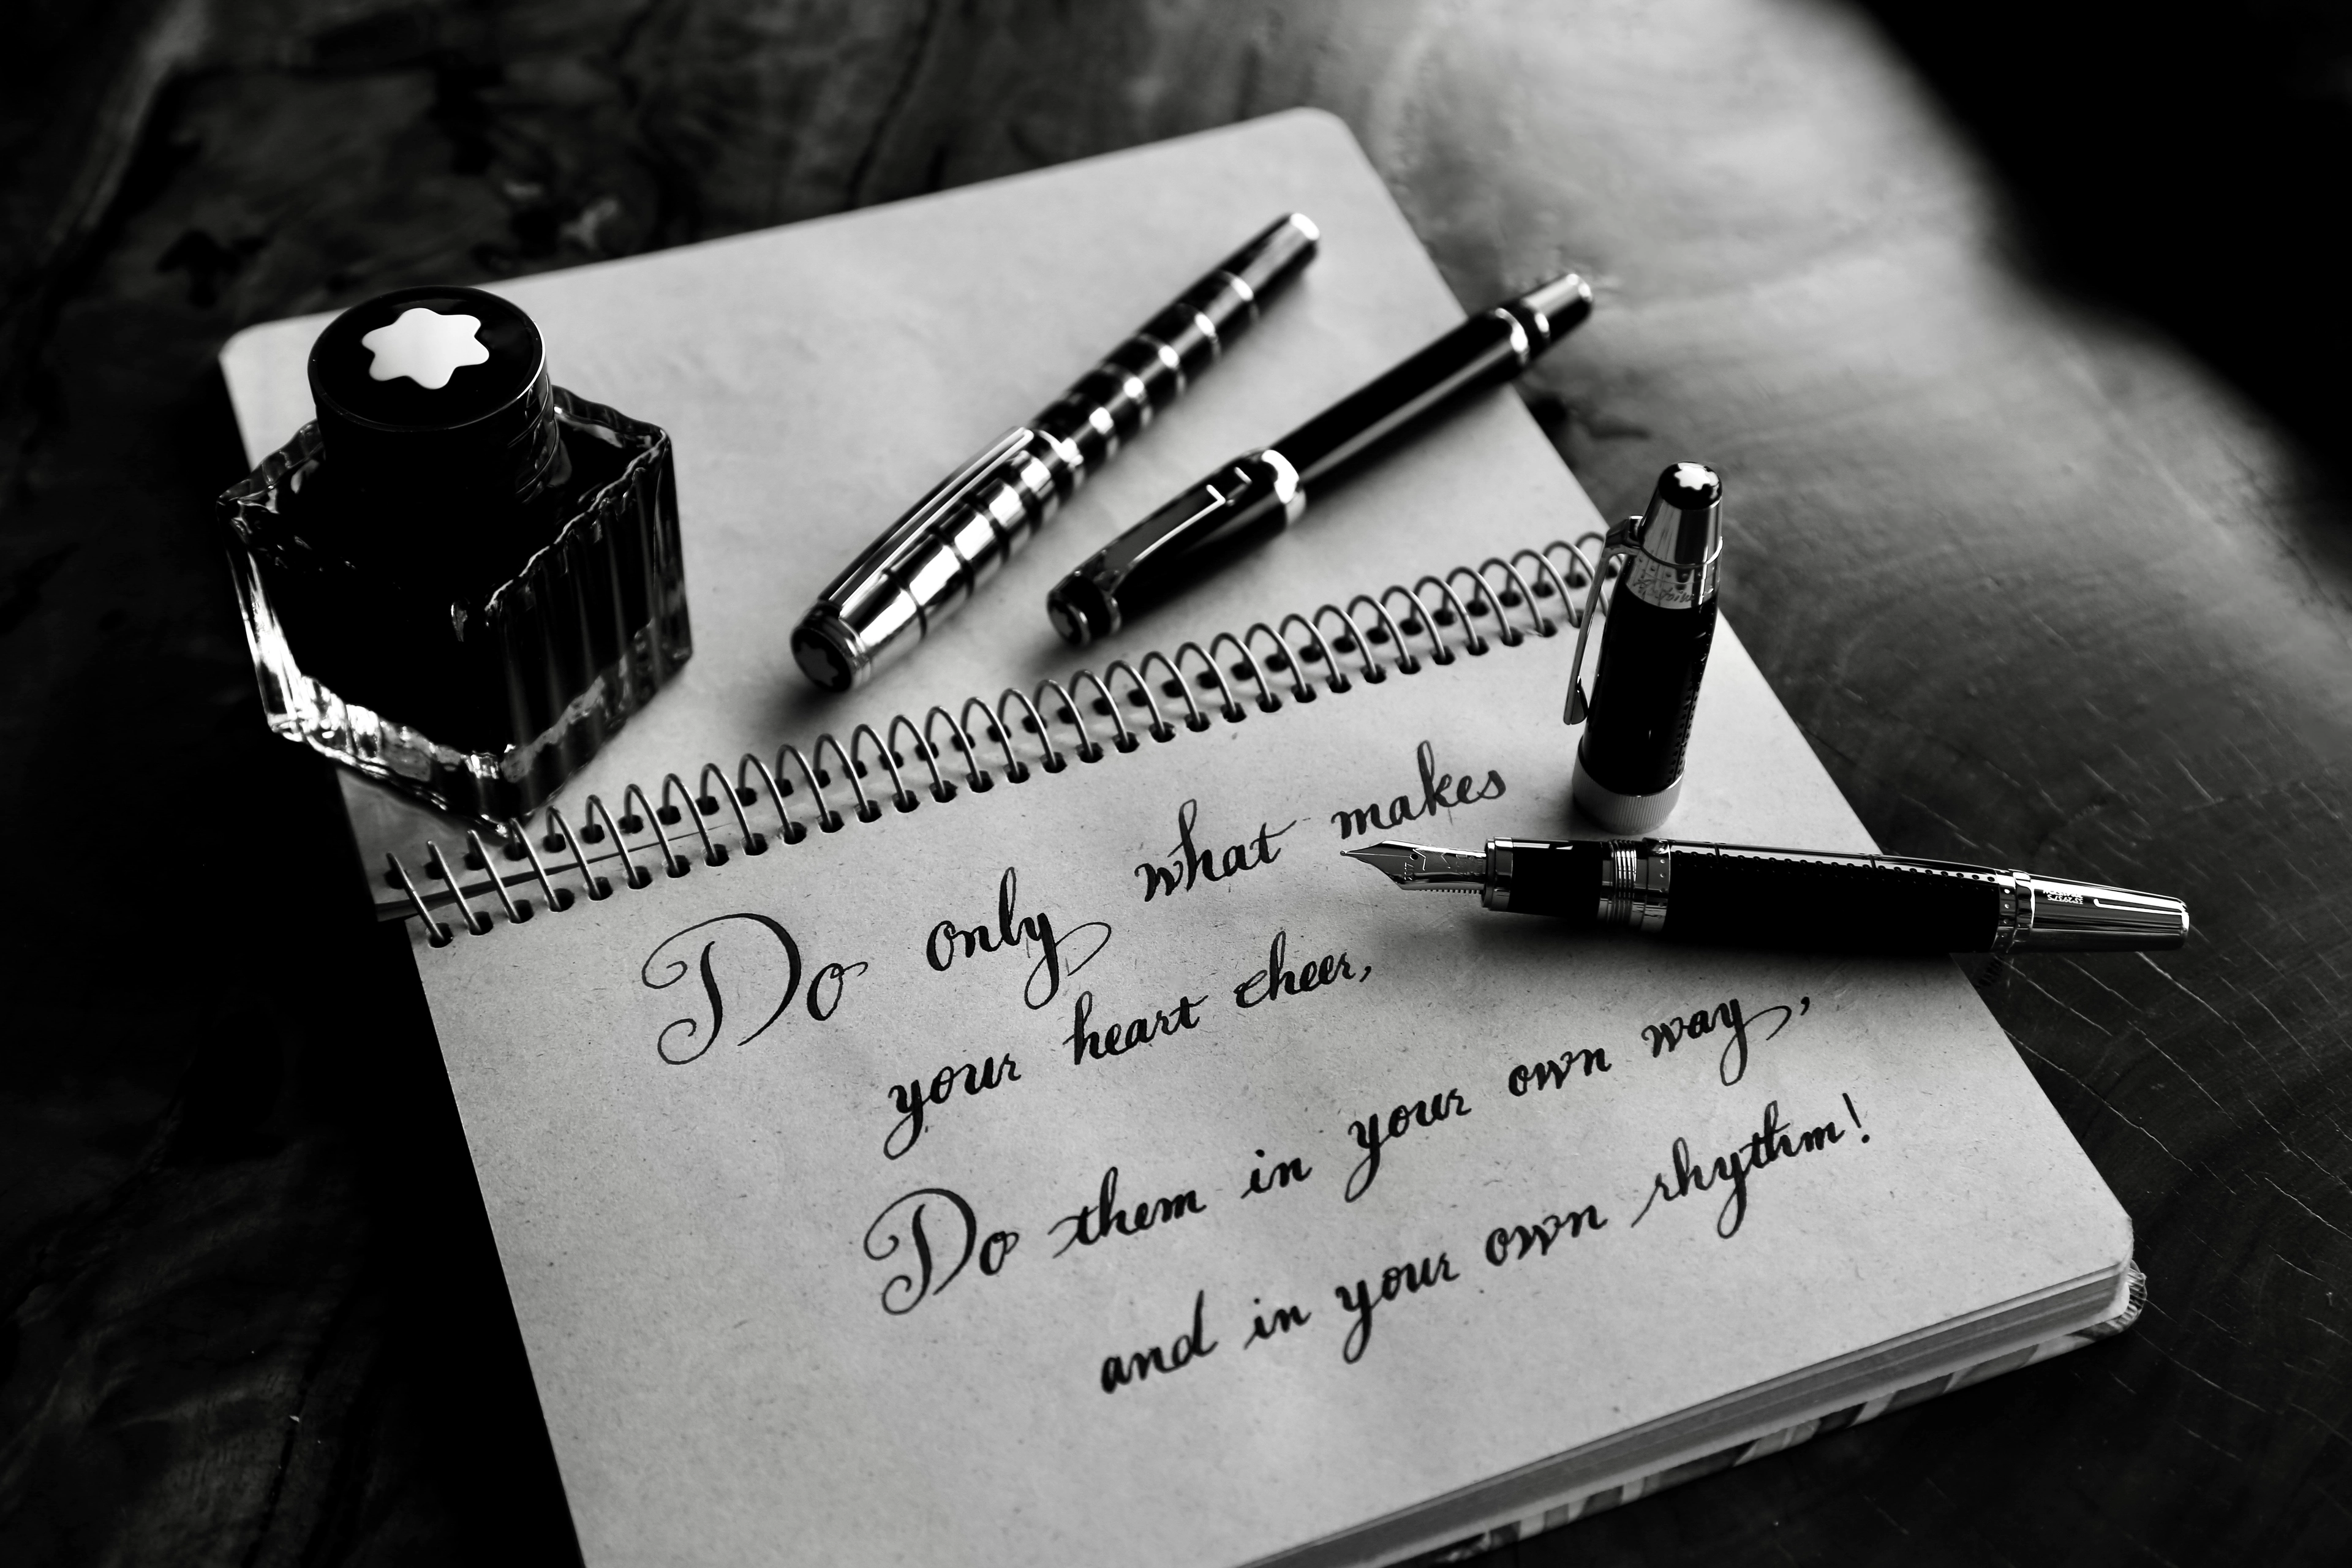 Do only what makes
your heart cheer,
Do them in your own way,
and in your own rhythm!